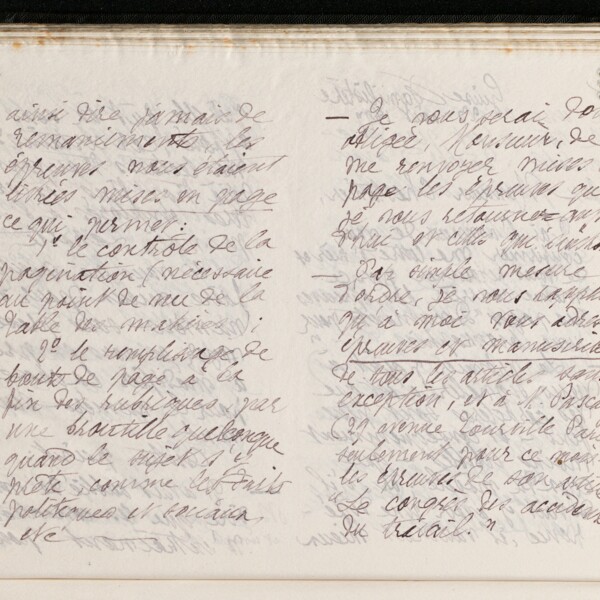 ainsi dire jamais de
remaniements les
épreuves nous étaient
livrées mises en page
ce qui permet:
1º le contrôle de la
pagination (nécessaire
au point de vue de la
table des matières;
2º le remplissage de
bouts de page à la
fin des rubriques, par
une broutille quelconque
quand le sujet s'y
prête, comme les Faits
politiques et sociaux,
etc
— Je vous serais
obligée, Monsieur, de
me renvoyer mises
page les épreuves que
je vous retourne
— Par simple mesure
d'ordre, je vous
qu'à moi vous
épreuves et
de tous les articles sans
exception, et à M. Pascal
(29 avenue Tourville
seulement pour ce
les épreuves de son
"Le congrès des
du travail."